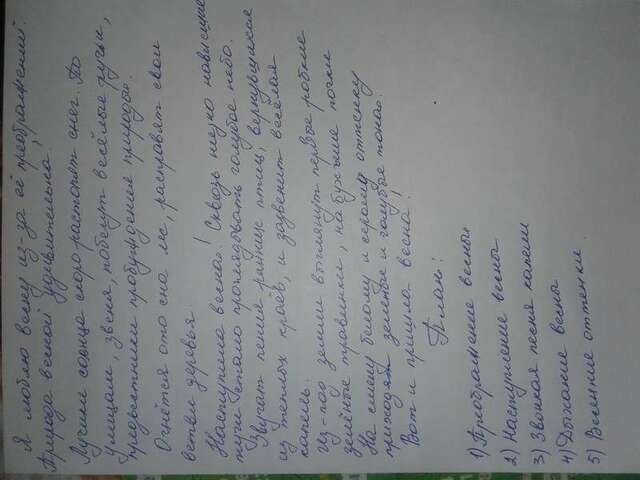 Я люблю весну из-за её преображений.
Природа весной удивительна.
Лучики солнца скоро растопят снег. По
улицам, звеня, побегут весёлые ручьи,
предвестники пробуждения природы.
Очнётся ото сна лес, расправят свои
ветви деревья.
Наступила весна! Сквозь низко нависшие
тучи стало проглядывать голубое небо.
Звучат пения ранних птиц, вернувшихся
из теплых краёв, и зазвенит весёлая
капель.
Из-под земли выглянут первые робкие
зелёные травинки, набухшие почки
На смену белому и серому оттенку
приходят зелёные и голубые тона.
Вот и пришла весна!
План:
1) Преображение весны
2) Наступление весны
3) Звонкая песня капели
4) Дыхание весны
5) Весенние оттенки.